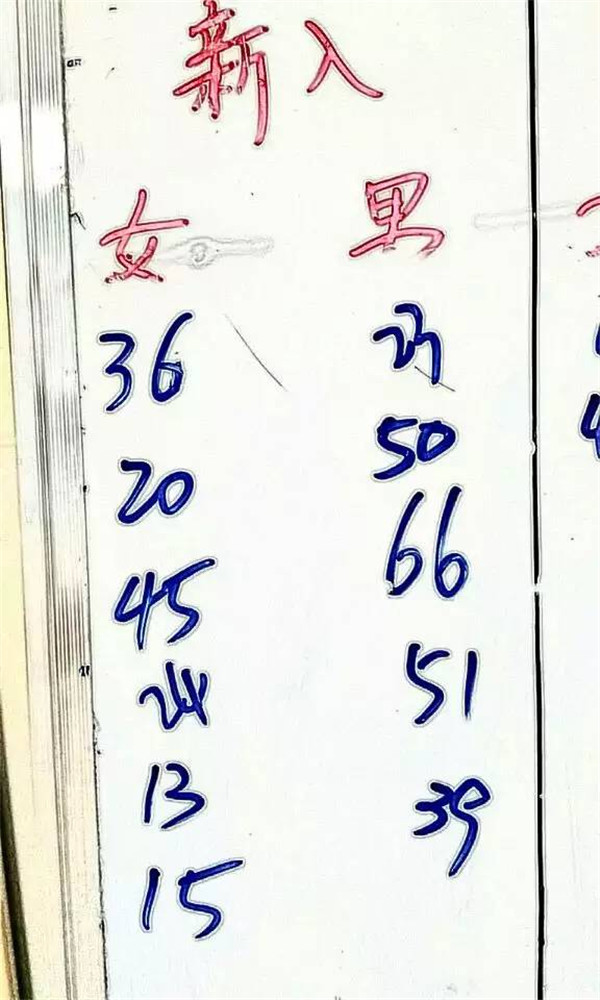 新入
女 男
36
20 50
45 66
24 51
13 39
15